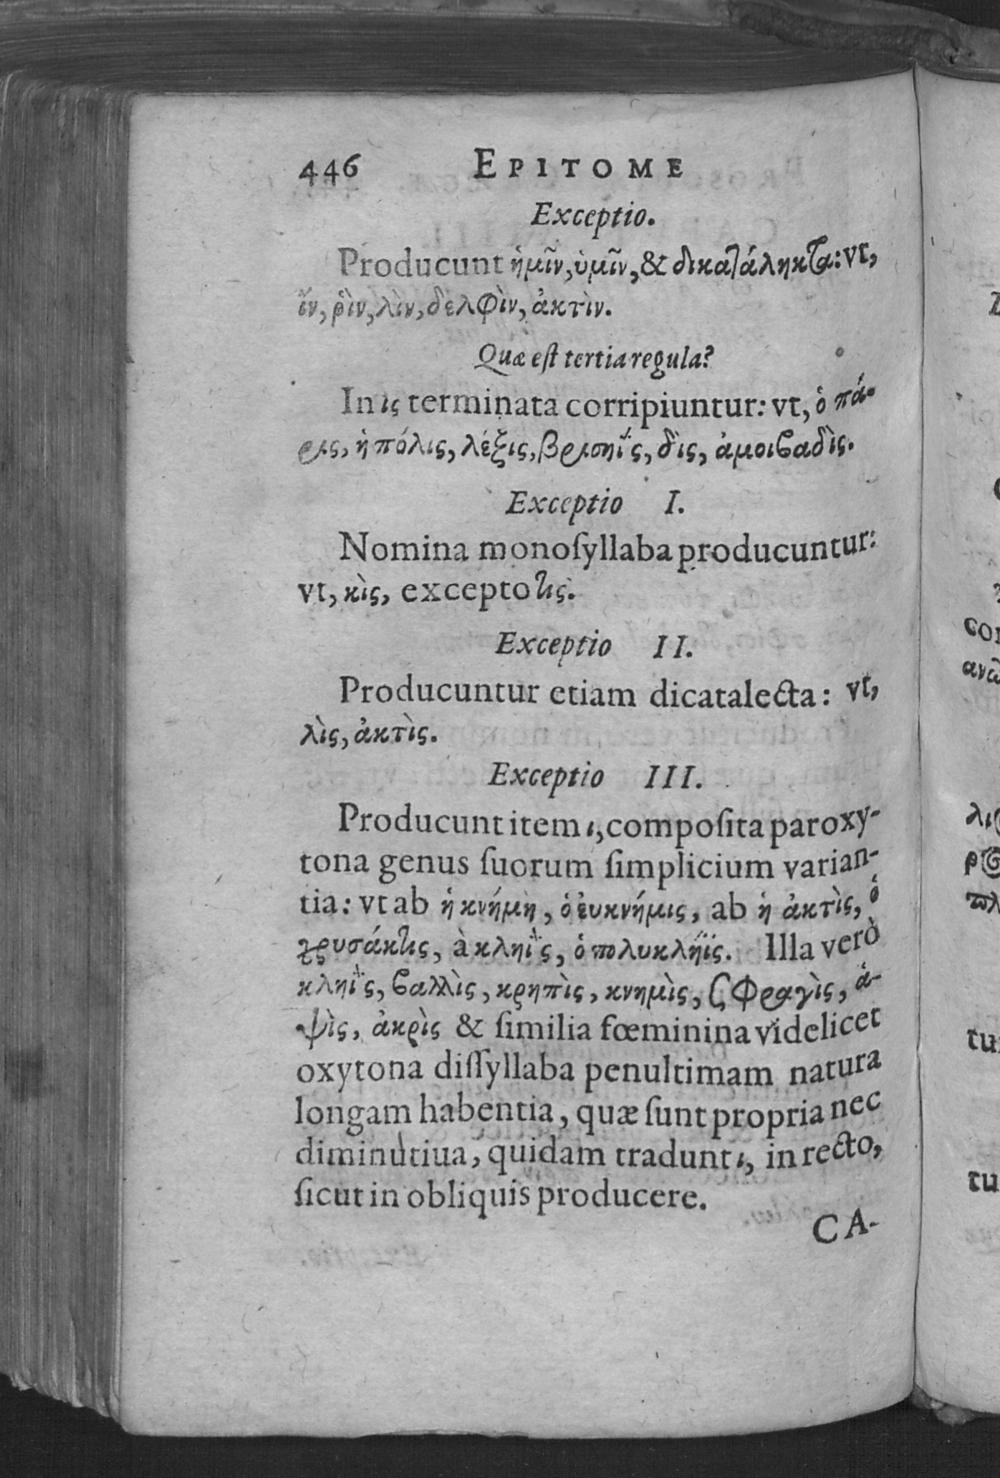 446 EPITOME
Exceptio.
Producunt ἡμῖν, ὑμῖν, & δικατάληκτα: vt,
ἲν, ῥὶν, λὶν, δελφὶν, ἀκτὶν.
Quæ est tertia regula?
In ις terminata corripiuntur: vt, ὁ πά-
ρις, ἡ πόλις, λέξις, βρισηῒς, δὶς, ἀμοιβαδὶς.
Exceptio I.
Nomina monosyllaba producuntur:
vt, κὶς, excepto τις.
Exceptio II.
Producuntur etiam dicatalecta: vt,
λὶς, ἀκτὶς.
Exceptio III.
Producunt item ι, composita paroxy-
tona genus suorum simplicium varian-
tia: vt ab ἡ κνήμη, ὁ εὐκνήμις, ab ἡ ἀκτὶς, ὁ
χρυσάκτις, à κληῒς, ὁ πολυκλήϊς. Illa verò
κληῒς, βαλλὶς, κρηπὶς, κνημὶς, σφραγὶς, ἁ-
ψὶς, ἀκρὶς & similia fœminina videlicet
oxytona dissyllaba penultimam natura
longam habentia, quæ sunt propria nec
diminutiua, quidam tradunt ι, in recto,
sicut in obliquis producere.
CA-